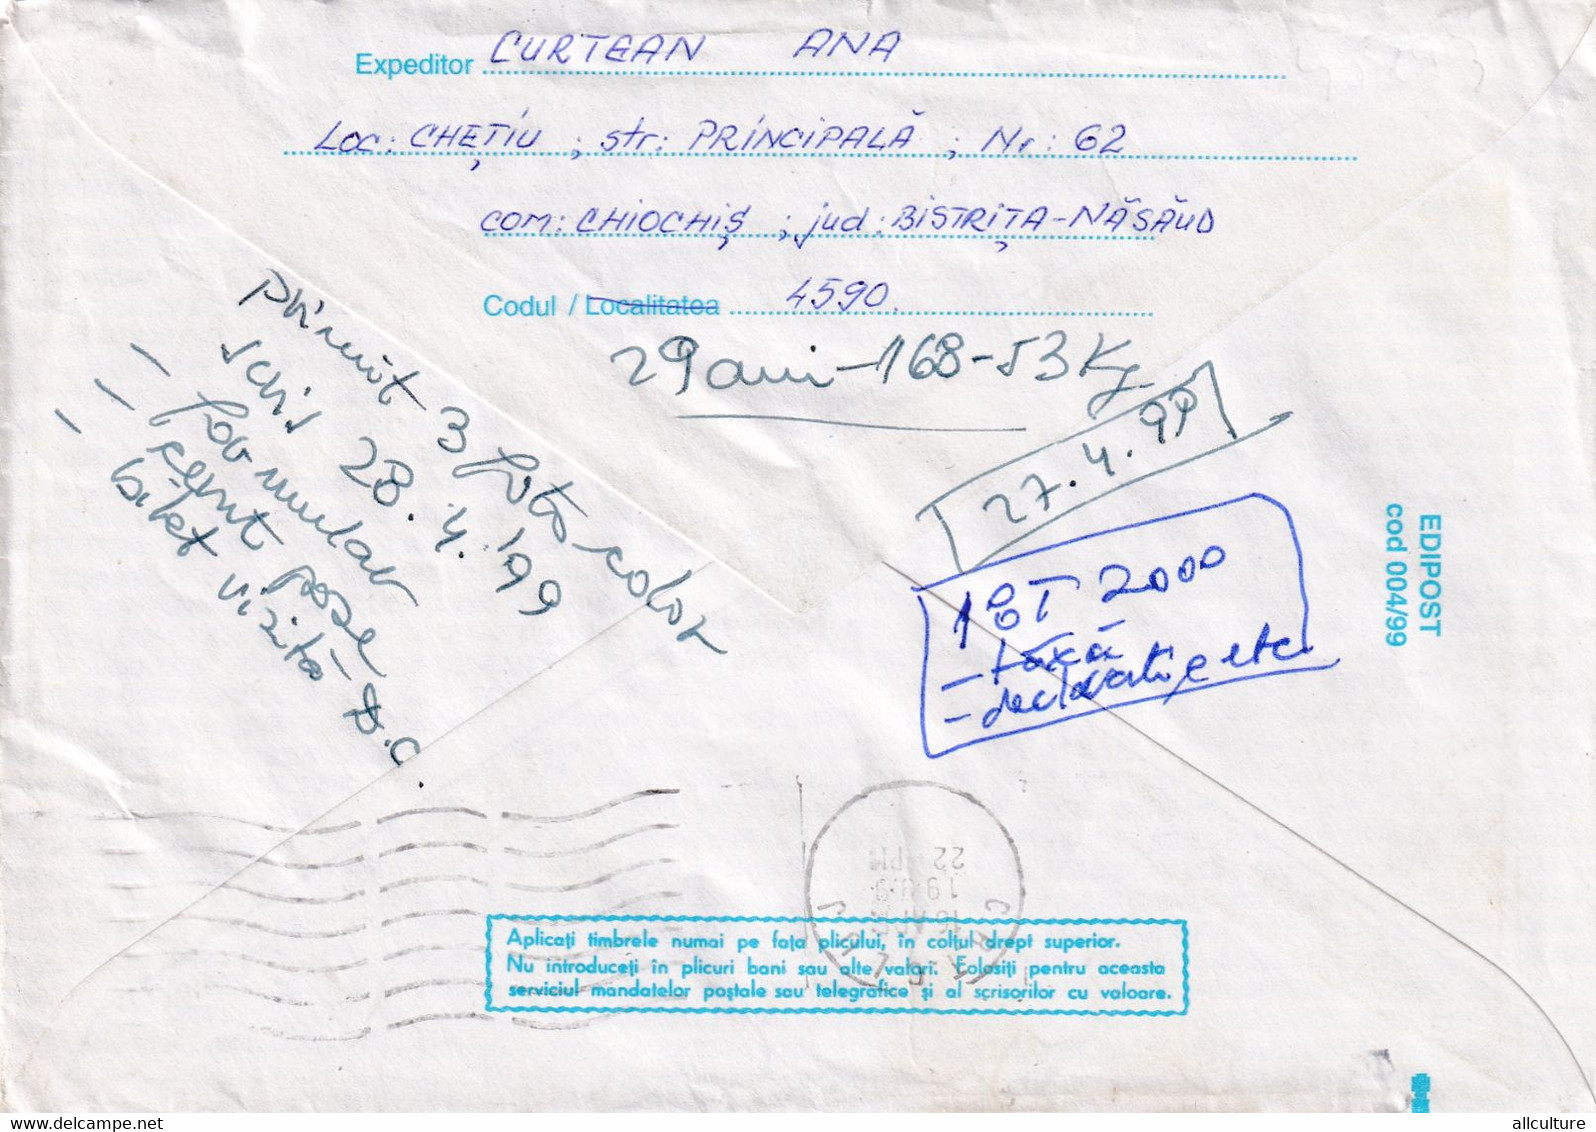 Expeditor CURTEAN ANA
Loc: CHEȚIU ; str: PRINCIPALĂ ; Nr: 62
com: CHIOCHIȘ ; jud: BISTRIȚA-NĂSĂUD
Codul / Localitatea 4590.
29 ani - 168 - 53 Kg
27.4.99
primit 3 foto color
scris 28.4.'99
- formular
- poze
- bilet vizită D.C.
2000
- taxă
- declarație etc.
EDIPOST
cod 004/99
22 PM
Aplicați timbrele numai pe fața plicului, în colțul drept superior.
Nu introduceți în plicuri bani sau alte valori. Folosiți pentru aceasta
serviciul mandatelor poștale sau telegrafice și al scrisorilor cu valoare.
www.delcampe.net
allculture